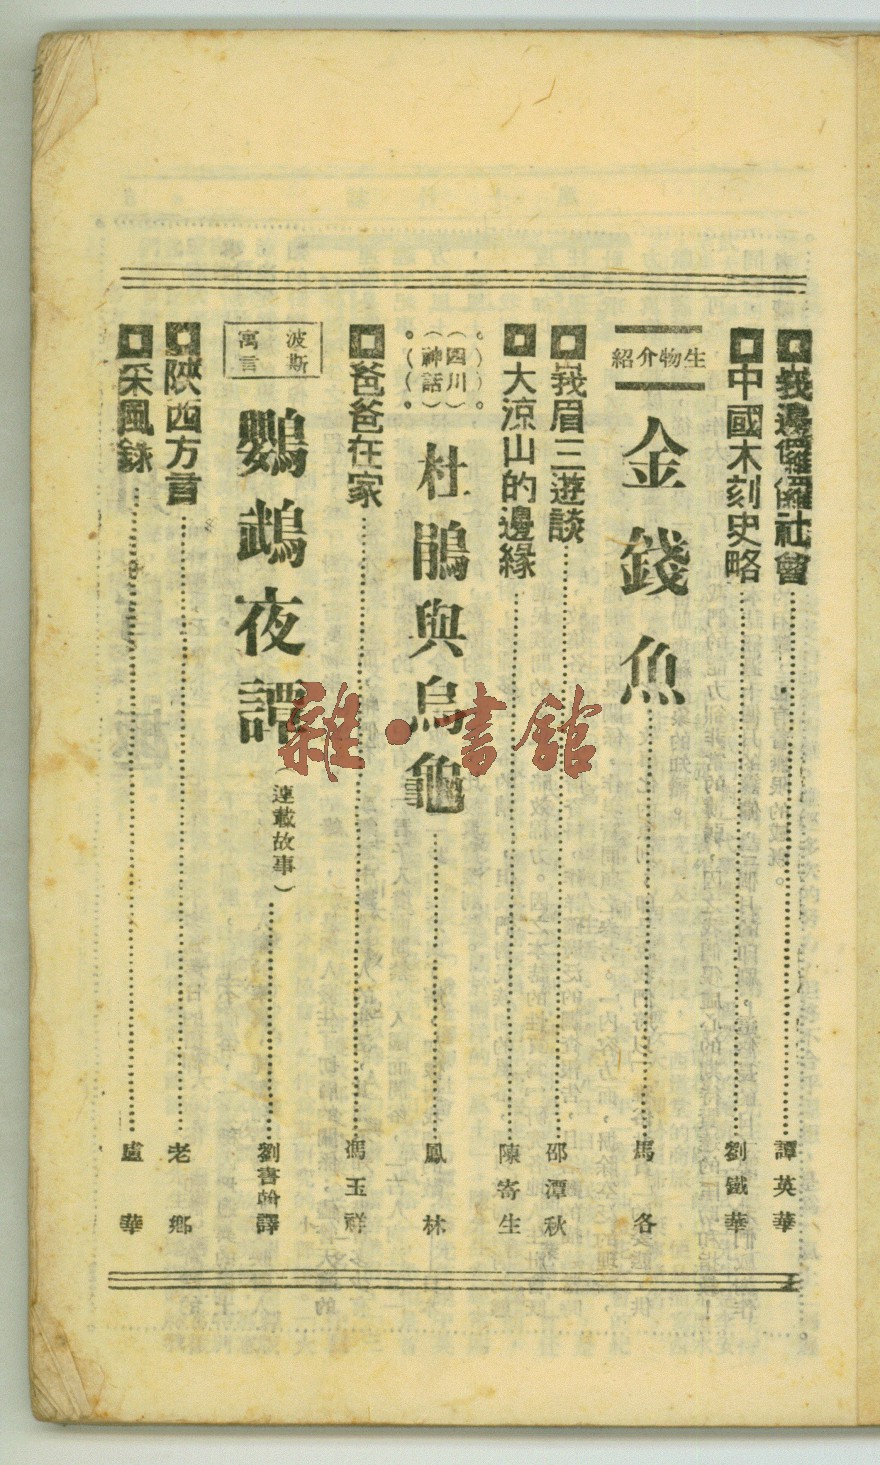 峩邊倮儸社會……譚英華
中國木刻史略……劉鐵華
生物介紹
金錢魚……馬各
峩眉三遊談……邵潭秋
大涼山的邊緣……陳寄生
(四川神話)
杜鵑與烏龜……鳳林
爸爸在家……馮玉祥
波斯寓言
鸚鵡夜譚(連載故事)……劉書翰譯
陝西方言……老鄉
采風錄……盧華
雜·書館